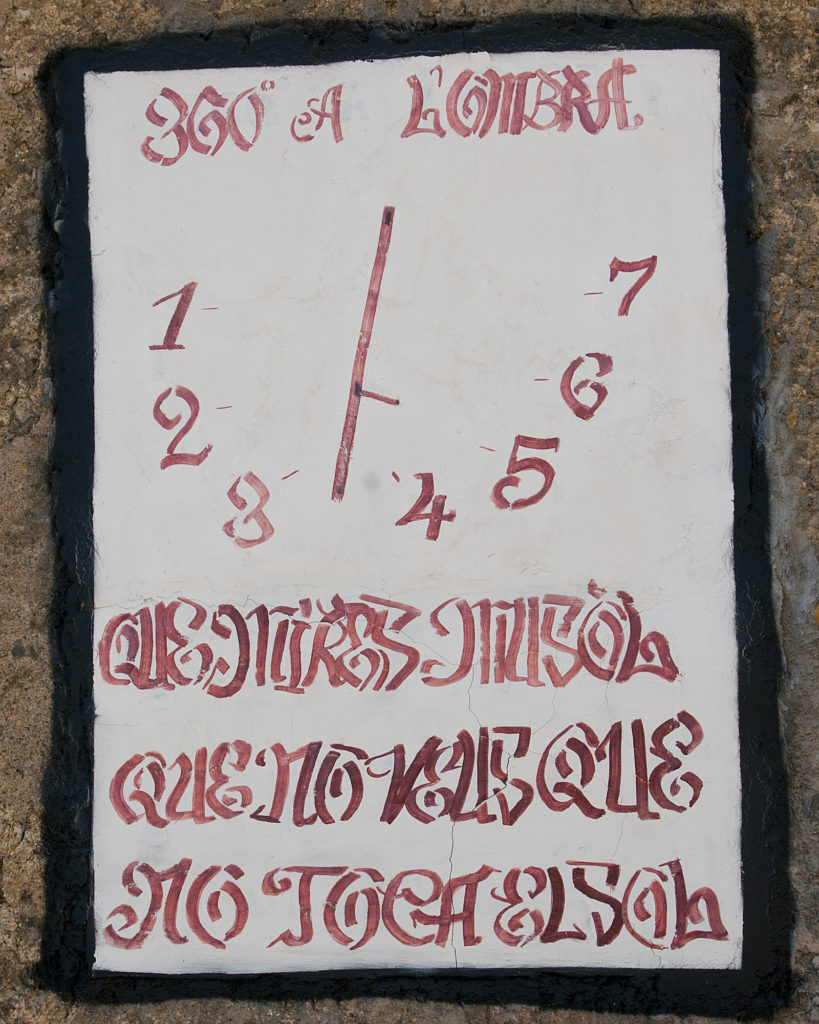 360° A L'OMBRA
1
7
2
6
3
4
5
QUE MIRES MUSÒL
QUE NO VEUS QUE
NO TOCA EL SOL